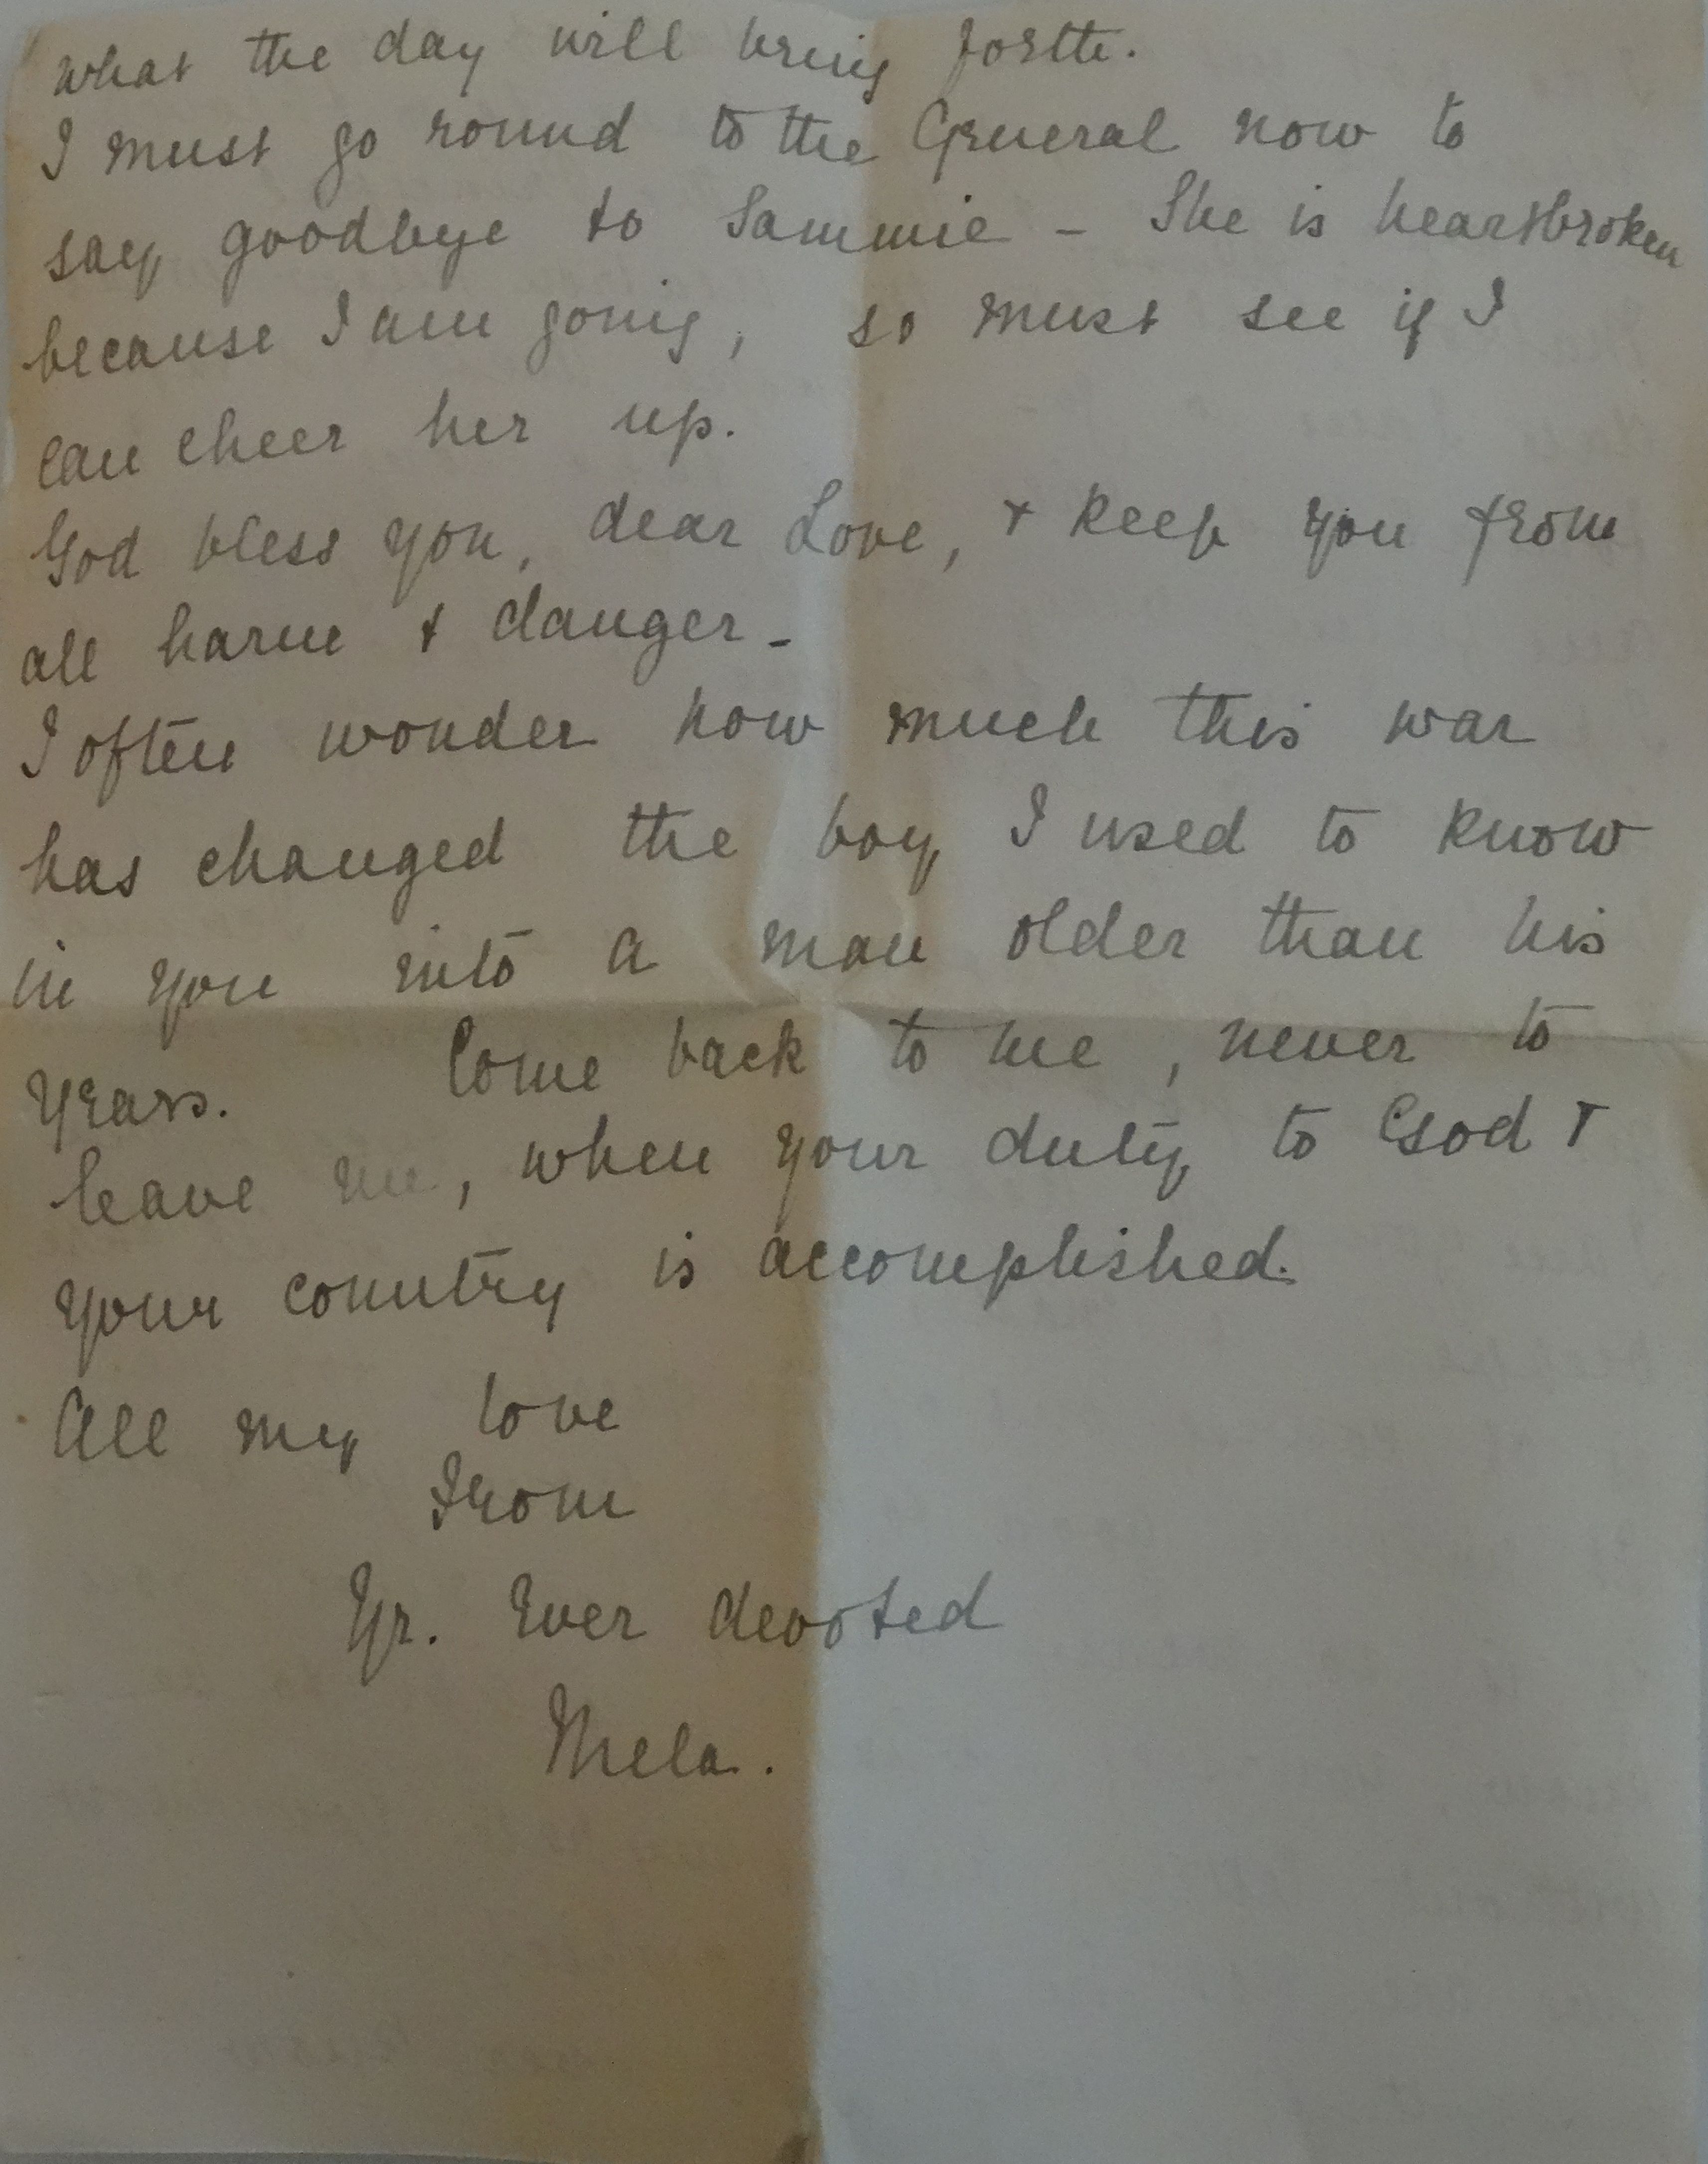 what the day will bring forth.
I must go round to the General now to
say goodbye to Sammie - She is heartbroken
because I am going, so must see if I
can cheer her up.
God bless you, dear Love, & keep you from
all harm & danger -
I often wonder how much this war
has changed the boy I used to know
in you into a man older than his
years. Come back to me, never to
leave me, when your duty to God &
your country is accomplished.
All my love
From
Yr. Ever devoted
Mela.